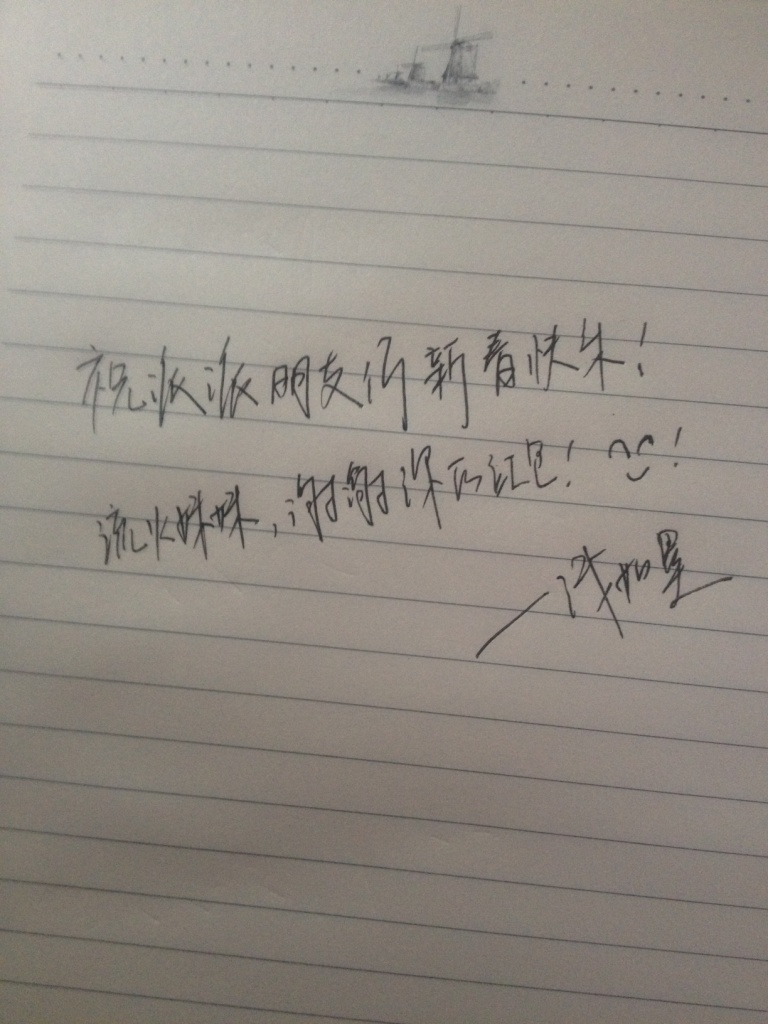 祝派派朋友们新春快乐!
流火妹妹,谢谢深的红包!!
—浅如星